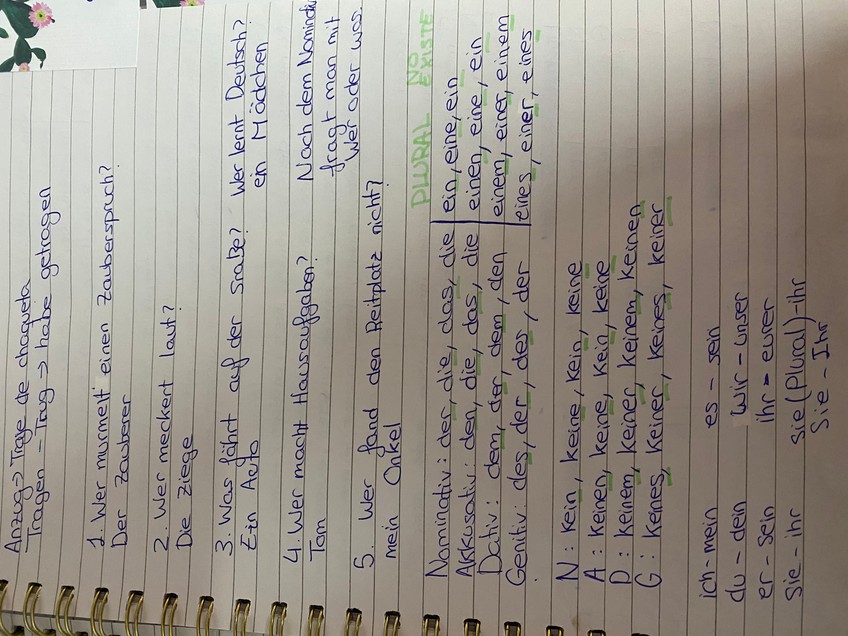 Anzug → Traje de chaqueta
Tragen - Trug → habe getragen
1. Wer murmelt einen Zauberspruch?
Der Zauberer
2. Wer meckert laut?
Die Ziege
3. Was fährt auf der sraße? Wer lernt Deutsch?
Ein Auto ein Mädchen
4. Wer macht Hausaufgaben? Nach dem Nominativ
Tom fragt man mit
Wer oder was.
5. Wer fand den Reitplatz nicht?
mein Onkel
PLURAL NO
EXISTE
Nominativ: der, die, das, die | ein, eine, ein
Akkusativ: den, die, das, die | einen, eine, ein
Dativ: dem, der, dem, den | einem, einer, einem
Genitiv: des, der, des, der | eines, einer, eines
N: Kein, keine, kein, keine
A: keinen, keine, kein, keine
D: keinem, keiner, keinem, keinen
G: keines, keiner, keines, keiner
ich - mein es - sein
du - dein wir - unser
er - sein ihr = eurer
Sie - ihr sie (Plural) - ihr
Sie - Ihr